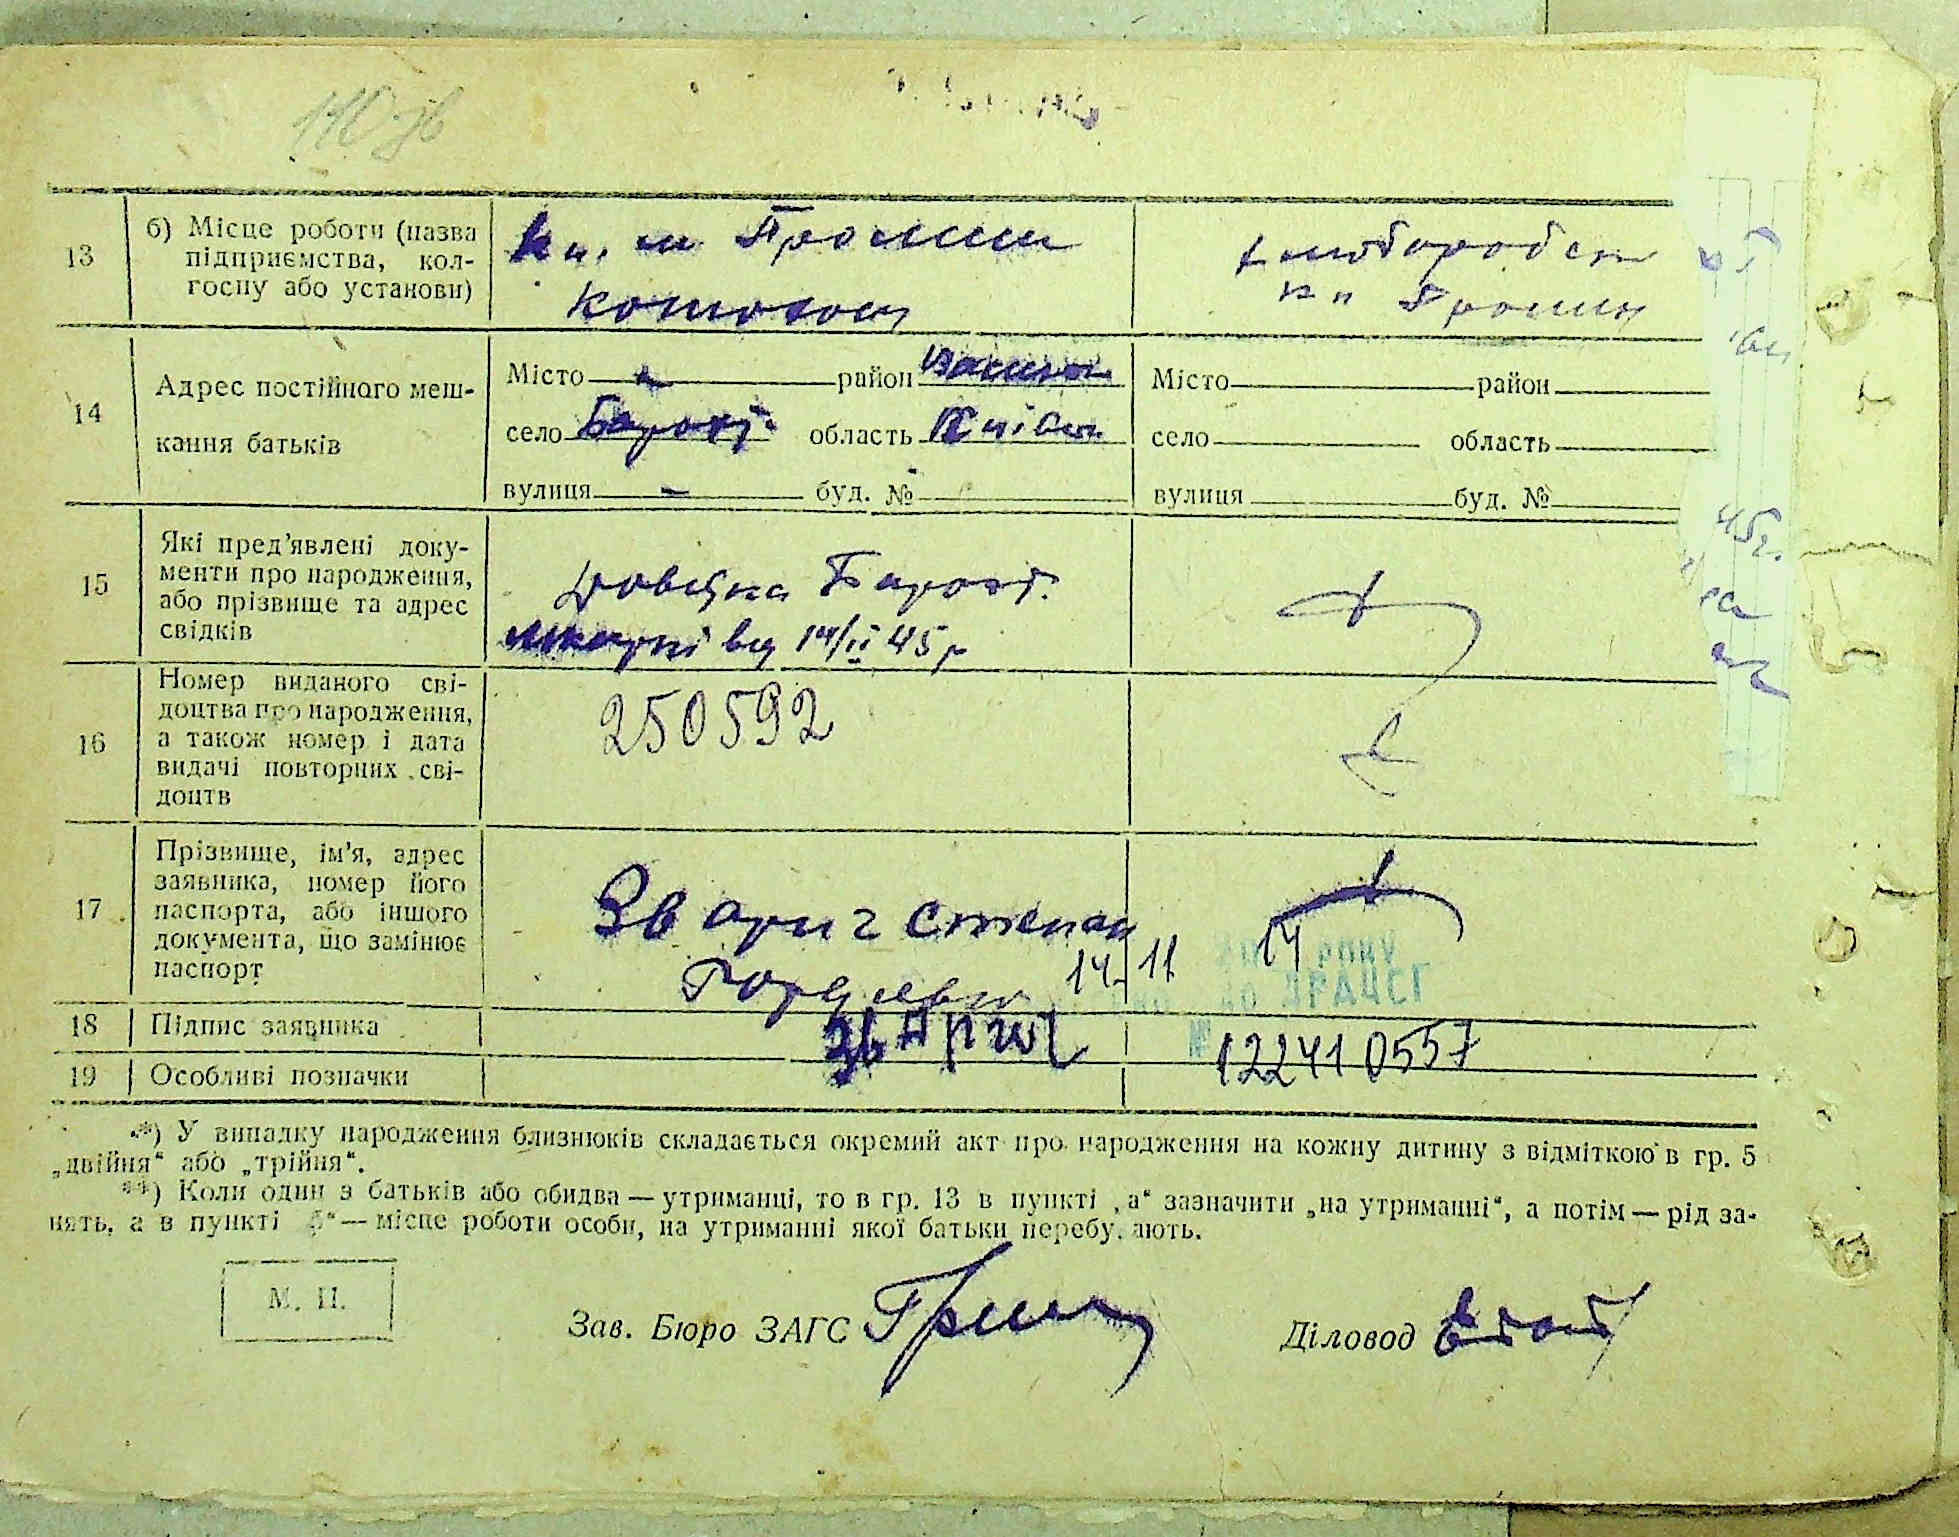 110 зв
13
б) Місце роботи (назва
підприємства, кол-
госпу або установи)
14
Адрес постійного меш-
кання батьків
Місто - район
село Барахт. область Київськ.
вулиця - буд. №
Місто район
село область
вулиця буд. №
15
Які пред'явлені доку-
менти про народження,
або прізвище та адрес
свідків
Довідка Барахт.
лікарні від 14/II 45 р
16
Номер виданого сві-
доцтва про народження,
а також номер і дата
видачі повторних сві-
доцтв
250592
17
Прізвище, ім'я, адрес
заявника, номер його
паспорта, або іншого
документа, що замінює
паспорт
Зварич Степан
14 11 14 року
до ДРАЦСГ
18 Підпис заявника
Зварич
№ 122410557
19 Особливі позначки
*) У випадку народження близнюків складається окремий акт про народження на кожну дитину з відміткою в гр. 5
„двійня“ або „трійня“.
**) Коли один з батьків або обидва — утриманці, то в гр. 13 в пункті „а“ зазначити „на утриманні“, а потім — рід за-
нять, а в пункті „б“ — місце роботи особи, на утриманні якої батьки перебувають.
М. П.
Зав. Бюро ЗАГС
Діловод